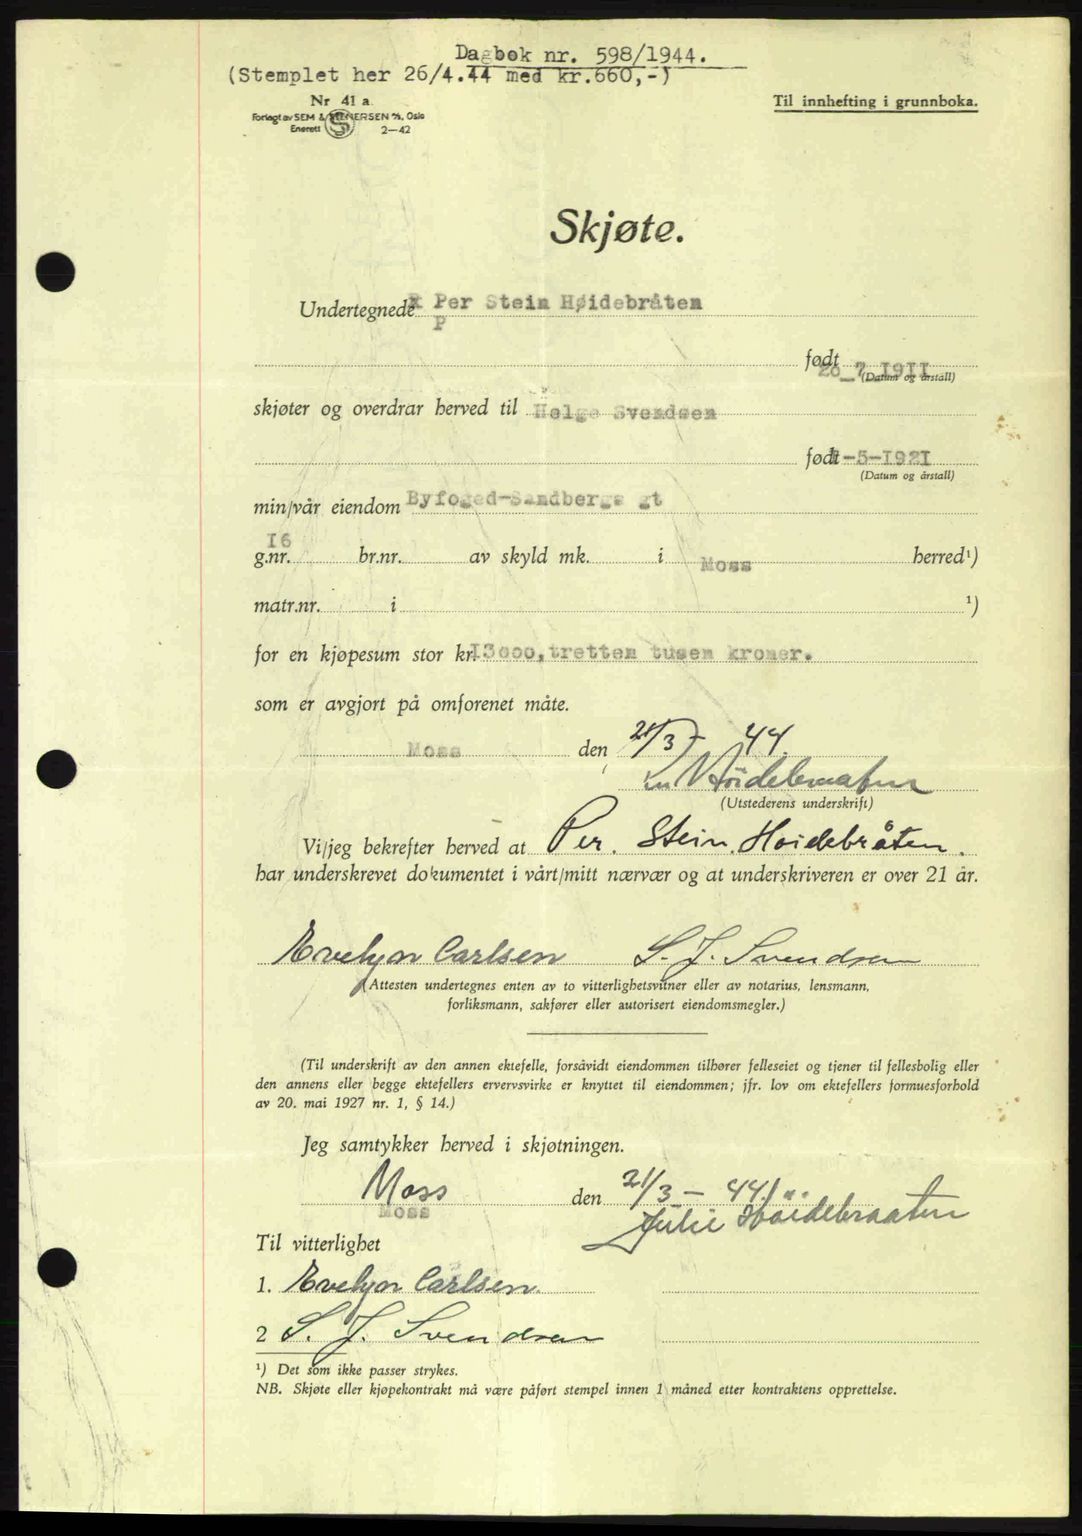 Dagbok nr. 598/1944.
(Stemplet her 26/4.44 med kr.660,-)
Nr 41 a.
Forlagt av SEM & STENERSEN A/S, Oslo
Enerett 2—42
Til innhefting i grunnboka.
Skjøte.
Undertegnede Per Stein Høidebråten
P
født 26_7_I9II
(Datum og årstall)
skjøter og overdrar herved til Helge Svendsen
født -5-I92I
(Datum og årstall)
min/vår eiendom Byfoged-Sandbergs gt
I6
g.nr. br.nr. av skyld mk. i Moss herred¹)
matr.nr. i ¹)
for en kjøpesum stor kr. I3000,tretten tusen kroner.
som er avgjort på omforenet måte.
Moss den 21/3 - 44.
Høidebraaten
(Utstederens underskrift)
Vi/jeg bekrefter herved at Per. Stein. Hoidebråten.
har underskrevet dokumentet i vårt/mitt nærvær og at underskriveren er over 21 år.
Evelyn Carlsen S. J. Svendsen
(Attesten undertegnes enten av to vitterlighetsvitner eller av notarius, lensmann,
forliksmann, sakfører eller autorisert eiendomsmegler.)
(Til underskrift av den annen ektefelle, forsåvidt eiendommen tilhører felleseiet og tjener til fellesbolig eller
den annens eller begge ektefellers ervervsvirke er knyttet til eiendommen; jfr. lov om ektefellers formuesforhold
av 20. mai 1927 nr. 1, § 14.)
Jeg samtykker herved i skjøtningen.
Moss den 21/3 - 44.
Moss
Julie Høidebraaten
Til vitterlighet
1. Evelyn Carlsen.
2 S. J. Svendsen
¹) Det som ikke passer strykes.
NB. Skjøte eller kjøpekontrakt må være påført stempel innen 1 måned etter kontraktens opprettelse.